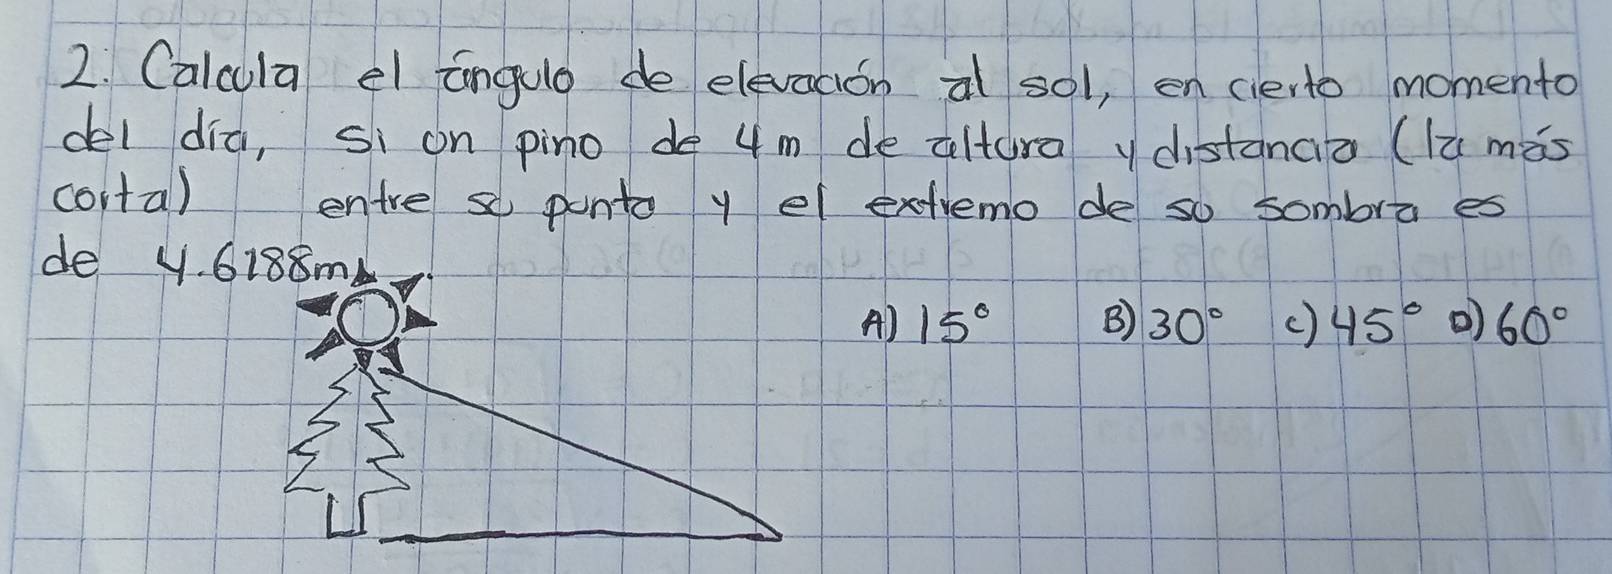 2. Calcula el ángulo de elevación al sol, en cierto momento
del día, si un pino de 4m de altura y distancia (la más
corta) entre su punta y el extremo de su sombra es
de 4.6188m.
A) 15° B) 30° C) 45° D) 60°